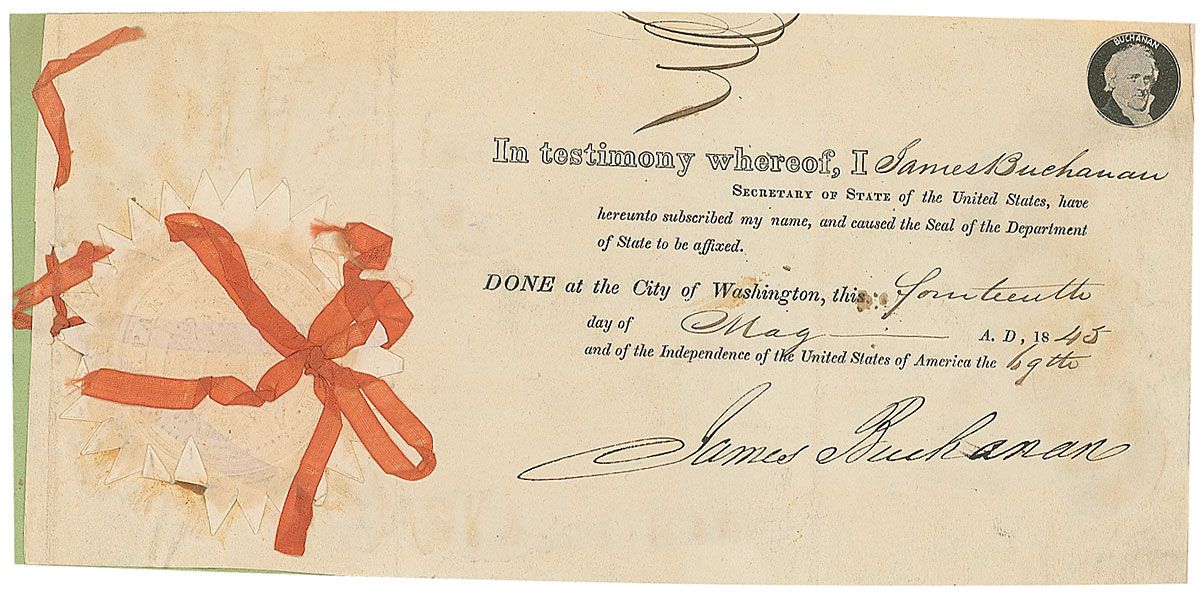 BUCHANAN
In testimony whereof, I James Buchanan
SECRETARY OF STATE of the United States, have
hereunto subscribed my name, and caused the Seal of the Department
of State to be affixed.
DONE at the City of Washington, this fourteenth
day of May A. D, 1845
and of the Independence of the United States of America the 69th
James Buchanan